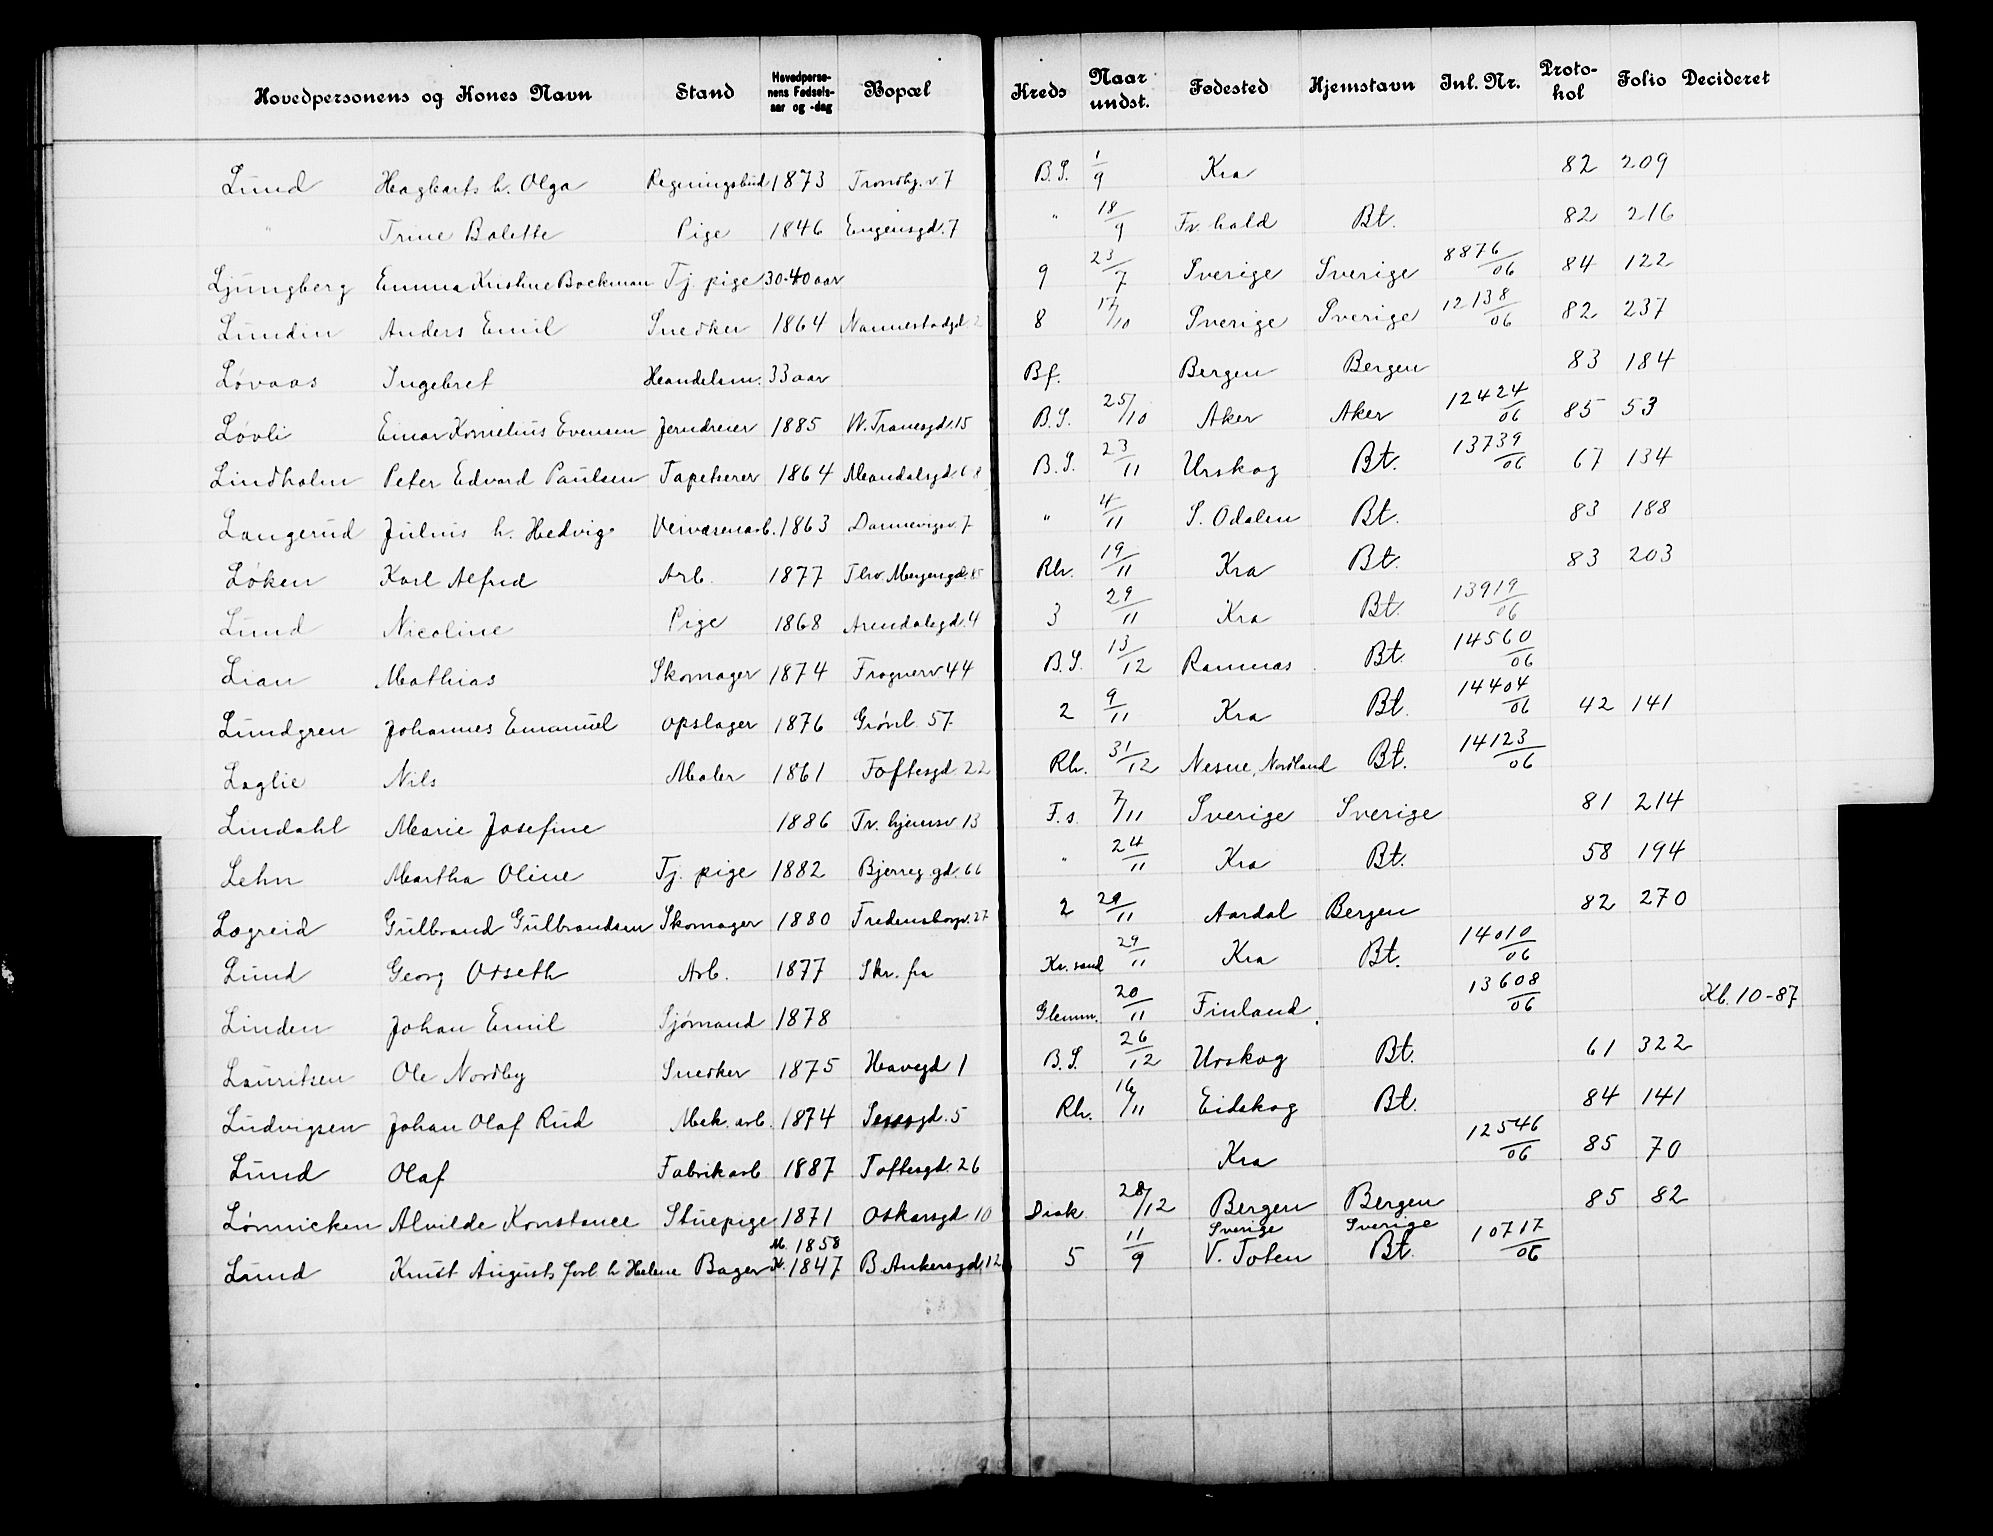 Hovedpersonens og Kones Navn Stand Hovedpersonens Fødselsaar og -dag Bopæl Kreds Naar undst. Fødested Hjemstavn Inl. Nr. Protokol Folio Decideret
Lund Hagbarts h. Olga Regningsbud 1873 Trondhj. v. 7 B.S. 1/9 Kra 82 209
" Trine Bolette Pige 1846 Eugensgd. 7 " 18/9 Fr. hald Bt. 82 216
Ljungberg Emma Kristine Bockman Tj. pige 30-40 aar 9 23/7 Sverige Sverige 8876/06 84 122
Lundin Anders Emil Snedker 1864 Nannestadgd. 2 8 17/10 Sverige Sverige 12138/06 82 237
Løvaas Ingebret Handelsm. 33 aar Bf. Bergen Bergen 83 184
Løvli Einar Kornelius Evensen Jerndreier 1885 W. Tranesgd. 15 B.S. 25/10 Aker Aker 12424/06 85 53
Lindholm Peter Edvard Paulsen Tapetserer 1864 Mandalsgd. 6 B.S. 23/11 Urskog Bt. 13739/06 67 134
Langerud Julius h. Hedvig Veivæsenarb. 1863 Dannevigsv. 7 " 4/11 S. Odalen Bt. 83 188
Løken Karl Alfred Arb. 1877 Thv. Meyersgd. 85 Rh. 19/11 Kra Bt. 83 203
Lund Nicoline Pige 1868 Arendalsgd. 4 3 29/11 Kra Bt. 13919/06
Lian Mathias Skomager 1874 Frognerv 44 B.S. 13/12 Ramnæs Bt. 14560/06
Lundgren Johannes Emanuel opslager 1876 Grønl. 57 2 9/11 Kra Bt. 14404/06 42 141
Laglie Nils Maler 1861 Toftesgd. 22 Rh. 31/12 Nesne, Nordland Bt. 14123/06
Lindahl Marie Josefine 1886 Tv. hjemsv 13 F.s. 7/11 Sverige Sverige 81 214
Lehn Martha Oline Tj. pige 1882 Bjerreg.gd. 66 " 24/11 Kra Bt. 58 194
Lægreid Gulbrand Gulbrandsen Skomager 1880 Fredensborgv. 27 2 29/11 Aardal Bergen 82 270
Lund Georg Orseth Arb. 1877 Skr. fra Kr. sand 29/11 Kra Bt. 14010/06
Linden Johan Emil Sjømand 1878 Glemm. 20/11 Finland 13608/06 Kb. 10-87
Lauritsen Ole Nordby Snedker 1875 Havegd 1 B.S. 26/12 Urskog Bt. 61 322
Ludvigsen Johan Olaf Rud Mek. arb. 1874 5 Rh. 16/11 Eidskog Bt. 84 141
Lund Olaf Fabrikarb 1887 Toftesgd. 26 Kra 12546/06 85 70
Lønnicken Alvilde Konstance Stuepige 1871 Oskarsgd 10 Diak. 28/12 Bergen Bergen 85 82
M. 1858 Sverige Sverige
Lund Knut August forl. h Helene Bager K. 1847 B. Ankersgd. 12 5 11/9 V. Toten Bt. 10717/06